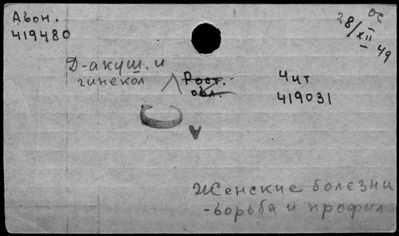 Абон.
419480
ос
28/XII 49
Д-акуш. и
гинекол
Рост.
обл.
Чит
419031
А
Женские болезни
-борьба и профил